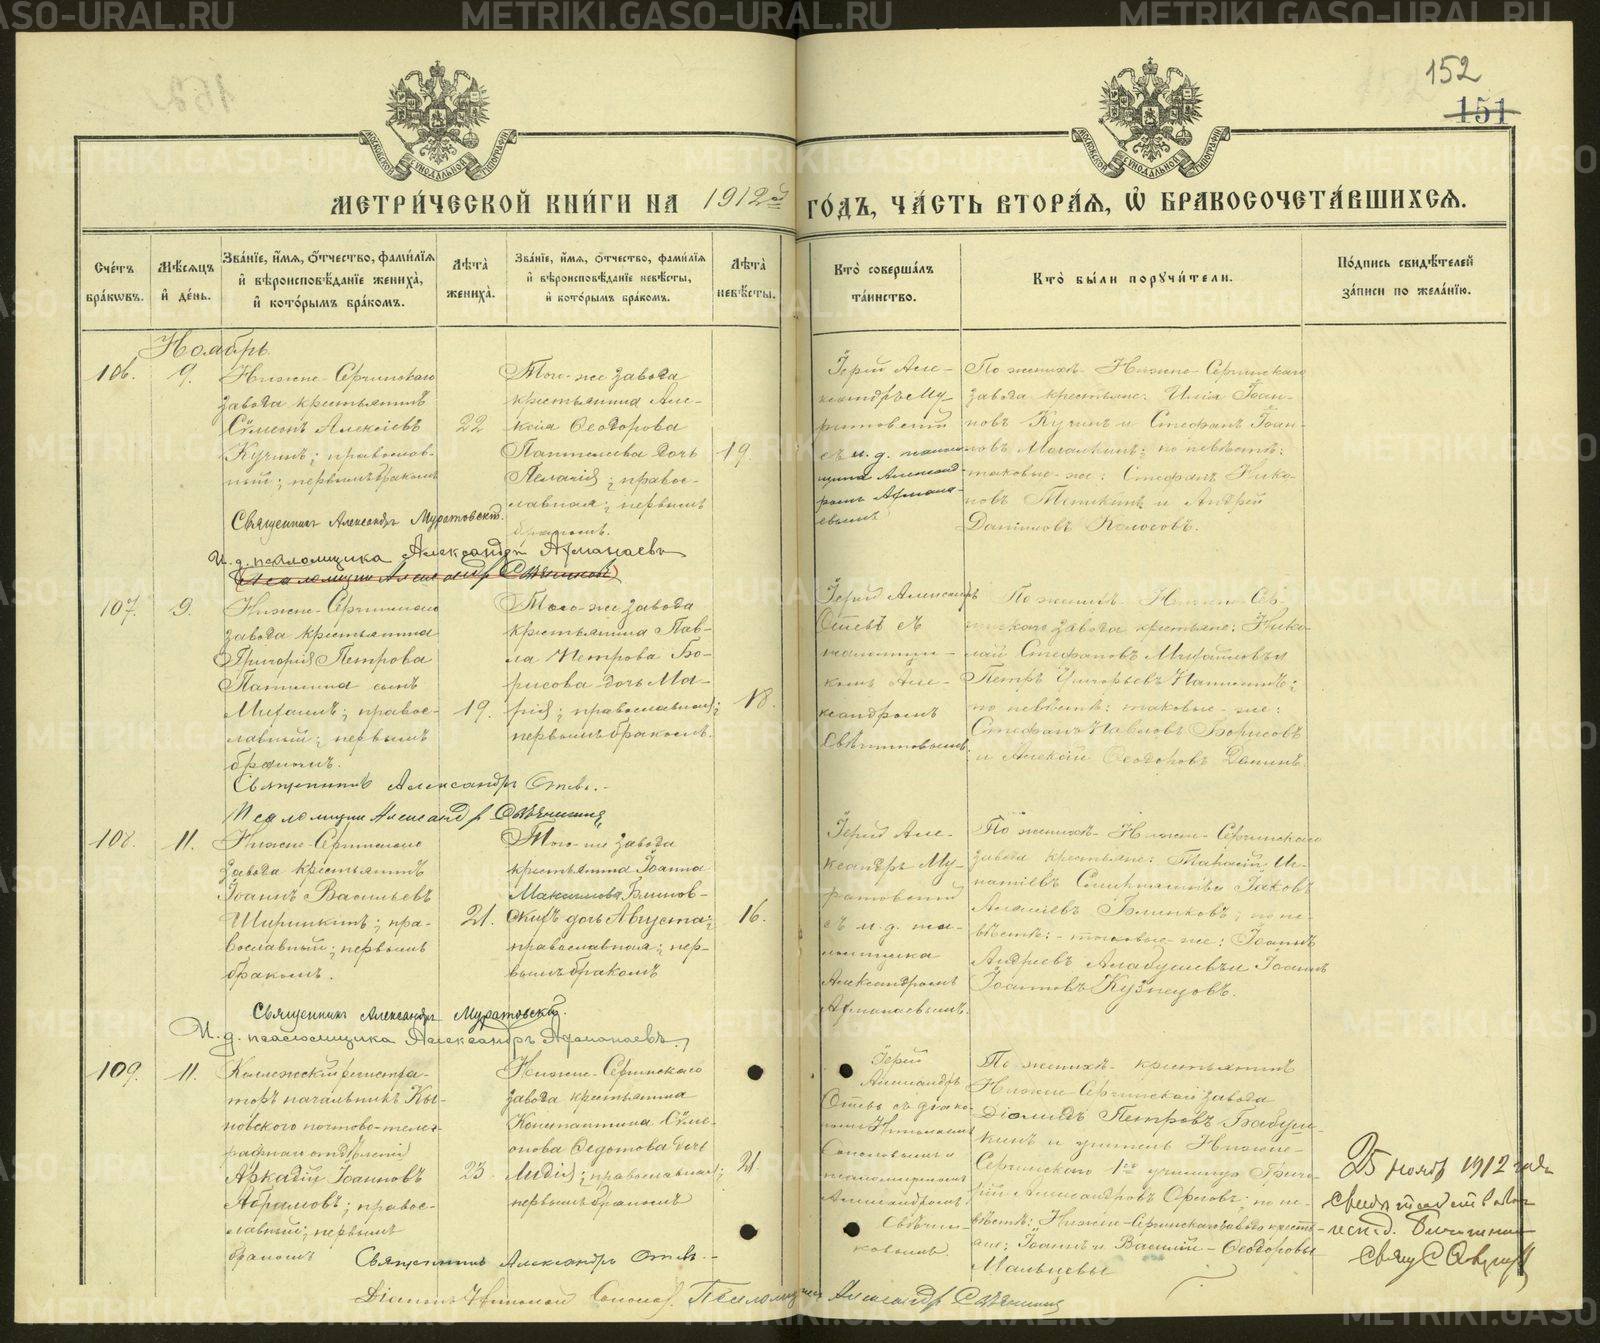 152
151
МЕТРИ́ЧЕСКОЙ КНИ́ГИ НА 1912й ГО́ДЪ, ЧА́СТЬ ВТОРА́Я, Ѡ҆ БРАКОСОЧЕТА́ВШИХСЯ.
Сче́тъ бра́кѡвъ.
Мѣ́сяцъ и҆ де́нь.
Зва́нїе, и҆́мя, ѻ҆́тчество, фами́лїя и҆ вѣроисповѣ́данїе жениха̀, и҆ кото́рымъ бра́комъ.
Лѣ́та жениха̀.
Зва́нїе, и҆́мя, ѻ҆́тчество, фами́лїя и҆ вѣроисповѣ́данїе невѣ́сты, и҆ кото́рымъ бра́комъ.
Лѣ́та невѣ́сты.
Кто̀ соверша́лъ та́инство.
Кто̀ бы́ли поручи́тели.
По́дпись свидѣ́телей за́писи по жела́нїю.
Ноябрь
106.
9.
Нижне-Сергинскаго
завода крестьянинъ
Сѷмеонъ Алексіевъ
Кучинъ; православ-
ный; первымъ бракомъ
22
Того-же завода
крестьянина Але-
Ѳеодорова
Пантелеева дочь
Пелагія; право-
славная; первымъ
бракомъ.
19.
Іерей Але-
ксандръ Му-
ратовскій
съ и. д. псалом-
щика Александ-
ромъ Афмана-
евымъ
По женихѣ Нижне-Сергинскаго
завода крестьяне: Илія Іоан-
новъ Кучинъ и Стефанъ Іоан-
новъ ; по невѣстѣ:
таковые-же: Стефанъ Нико-
новъ и Андрей
Даніиловъ Колосовъ.
Священникъ Александръ Муратовскій.
И. д. псаломщика Александръ Афманаевъ
Псаломщикъ Александръ Свѣчниковъ
107.
9.
Нижне-Сергинскаго
завода крестьянина
Григорія Петрова
Папилина сынъ
Михаилъ; правос-
лавный; первымъ
бракомъ.
19.
Того-же завода
крестьянина Пав-
ла Петрова Бо-
рисова дочь Ма-
рія; православная;
первымъ бракомъ.
18.
Іерей Александръ
Отевъ съ
псаломщи-
комъ Але-
ксандромъ
Свѣчниковымъ
По женихѣ Нижне-Сер-
гинскаго завода крестьяне: Нико-
лай Стефановъ Михайловъ и
Петръ Григорьевъ Папилинъ;
по невѣстѣ: таковые-же:
Стефанъ Павловъ Борисовъ
и Алексій Ѳеодоровъ
Священникъ Александръ Отевъ.
Псаломщикъ Александръ Свѣчниковъ
108.
11.
Нижне-Сергинскаго
завода крестьянинъ
Іоаннъ Васильевъ
Ширинкинъ; пра-
вославный; первымъ
бракомъ.
21.
Того-же завода
крестьянина Іоанна
Максимова Блинов-
скихъ дочь Августа;
православная; пер-
вымъ бракомъ
16.
Іерей Але-
ксандръ Му-
ратовскій
съ и. д. пса-
ломщика
Александромъ
Афманаевымъ.
По женихѣ Нижне-Сергинскаго
завода крестьяне: Тарасій Иг-
натіевъ и Іаковъ
Алексіевъ Блинковъ; по не-
вѣстѣ:-таковые-же: Іоаннъ
Андреевъ Алабушевъ и Іоаннъ
Іоанновъ Кузнецовъ.
Священникъ Александръ Муратовскій.
И. д. псаломщика Александръ Афманаевъ.
109.
11.
Коллежскій регистра-
торъ начальникъ Кы-
новского почтово-теле-
графнаго отдѣленія
Аркадій Іоанновъ
Абрамовъ; правос-
лавный; первымъ
бракомъ
23.
Нижне-Сергинскаго
завода крестьянина
Константина Сѷме-
онова Ѳедотова дочь
Лидія; православная;
первымъ бракомъ
21.
Іерей
Александръ
Отевъ съ діако-
номъ Николаемъ
и
псаломщикомъ
Александромъ
Свѣчни-
ковымъ.
По женихѣ крестьянинъ
Нижне-Сергинскаго завода
Діомидъ Петровъ Бабуш-
кинъ и учитель Нижне-
Сергинскаго 1го училища Григо-
рій Александровъ Орловъ; по не-
вѣстѣ: Нижне-Сергинскаго завода кресть-
яне: Іоаннъ и Василій Ѳеодоровы
Мальцевы
25 нояб 1912 года
Священникъ Александръ Отевъ.
Діаконъ Николай Псаломщикъ Александръ Свѣчниковъ